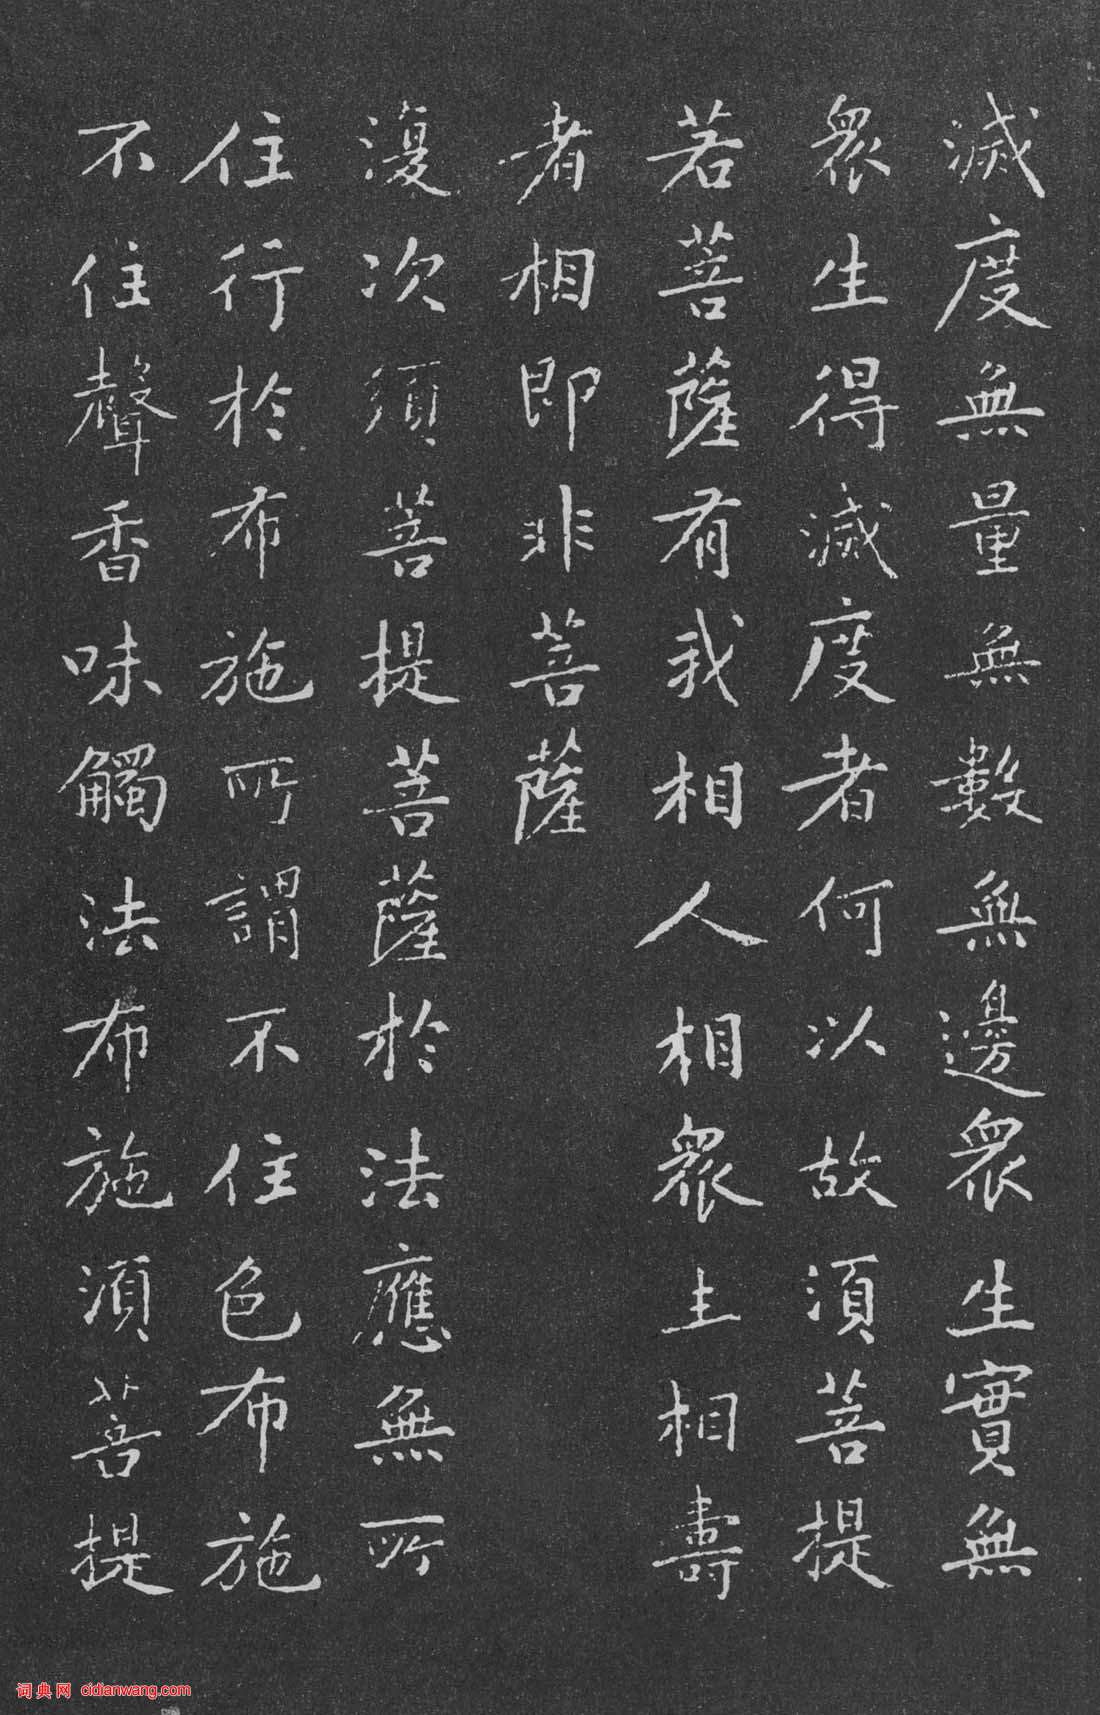 滅度無量無數無邊眾生實無
眾生得滅度者何以故須菩提
若菩薩有我相人相眾生相壽
者相即非菩薩
復次須菩提菩薩於法應無所
住行於布施所謂不住色布施
不住聲香味觸法布施須菩提
词典网 cidianwang.com